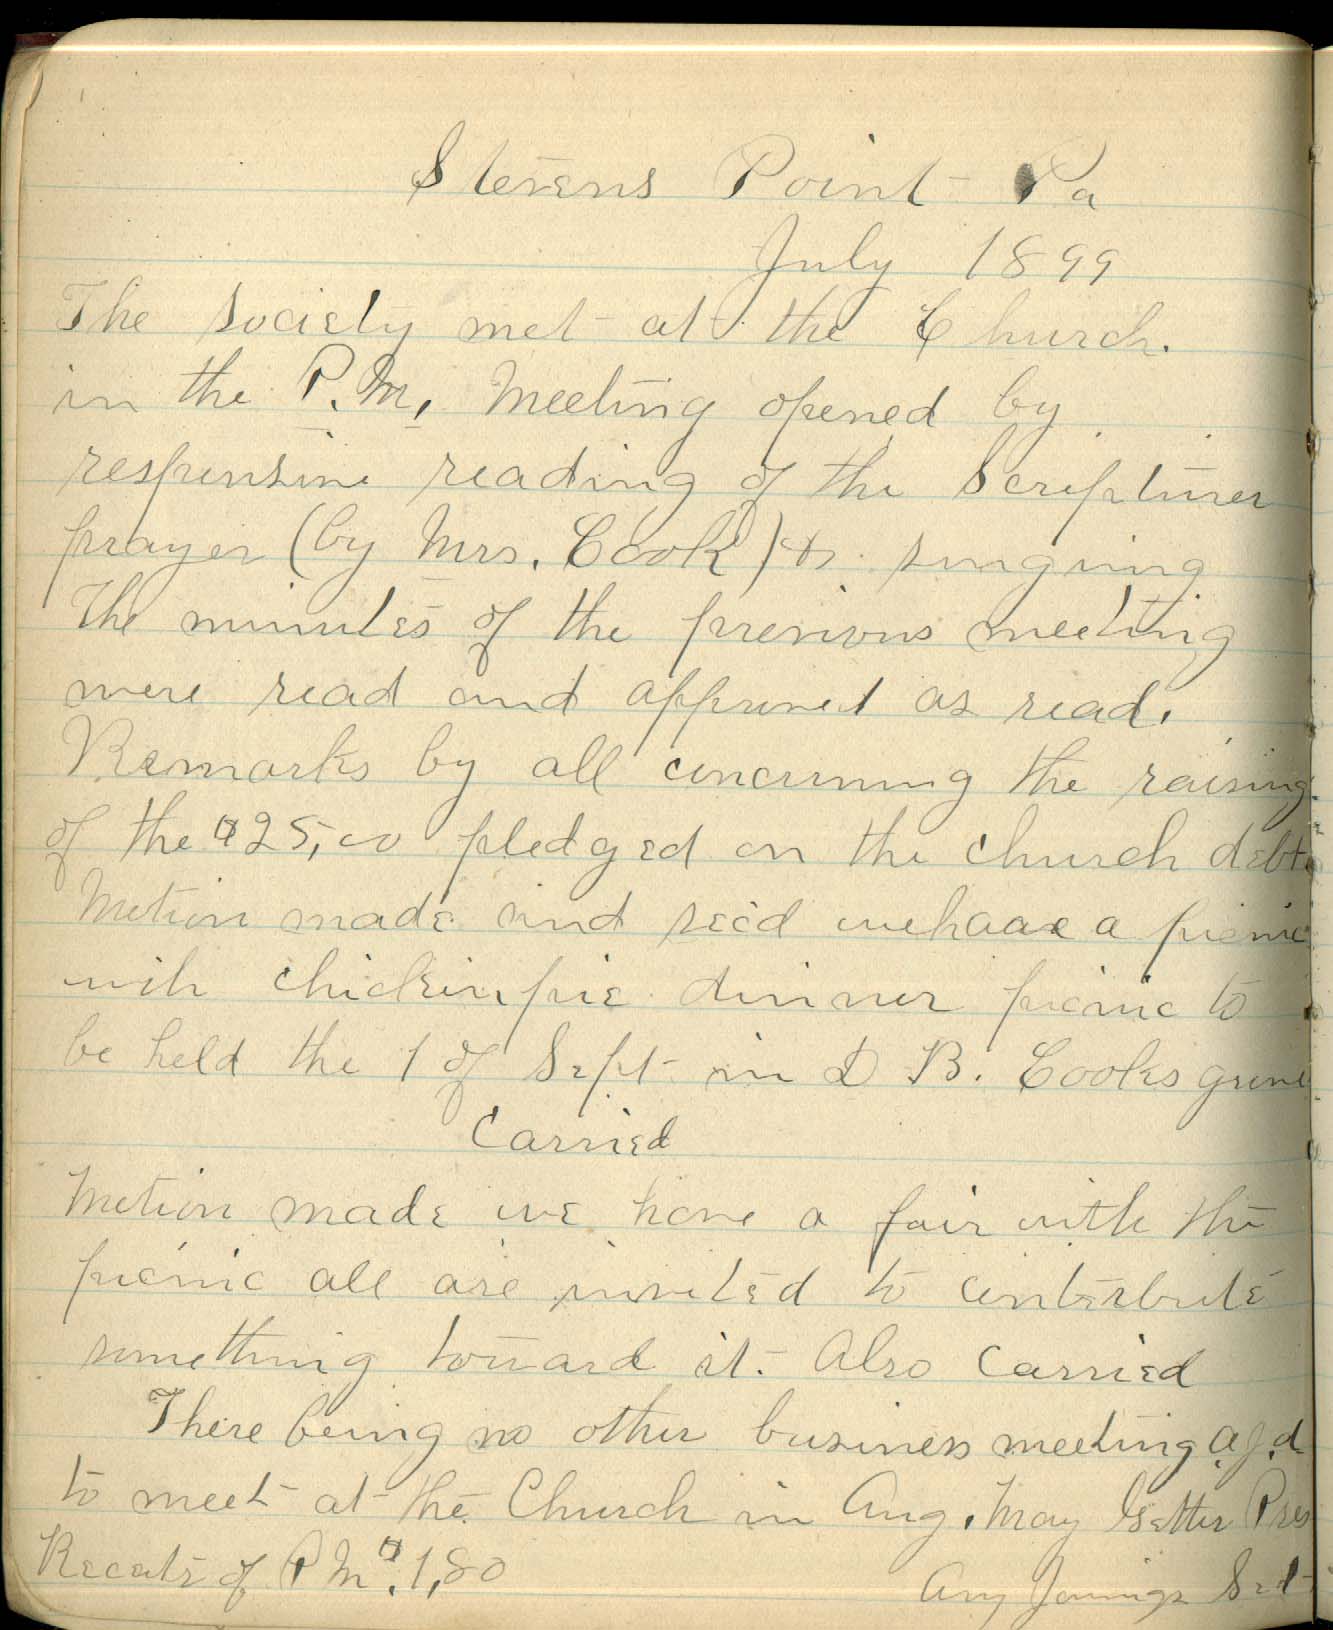 Stevens Point Pa
July 1899
The Society met at the Church.
in the P.M. Meeting opened by
responsive reading of the Scriptures
prayer (by Mrs. Cook) & singing
The minutes of the previous meeting
were read and approved as read.
Remarks by all concerning the raising
of the $25,00 pledged on the church debt
Motion made and sec'd we have a picnic
with chicken pie dinner picnic to
be held the 1 of Sept in D B. Cooks grove
Carried
Motion made we have a fair with the
picnic all are invited to contribute
something toward it. Also Carried
There being no other business meeting aj.d
to meet at the Church in Aug. May Pres
of P M. $1,80